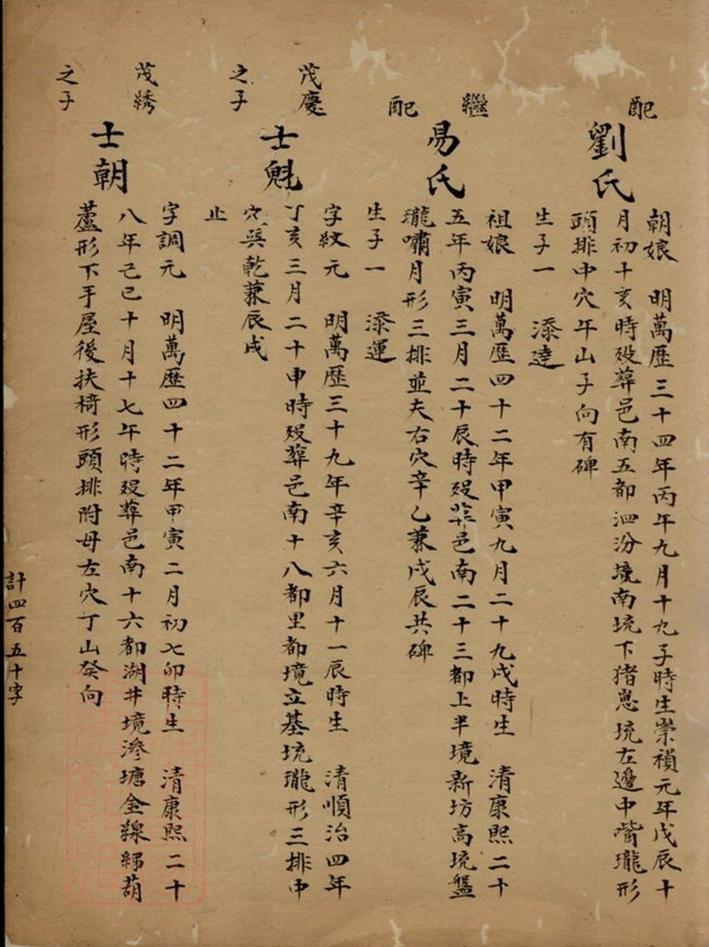 配
劉氏
朝娘 明萬歷三十四年丙午九月十九子時生崇禎元年戊辰十
月初十亥時殁葬邑南五都泗汾境南坑下猪崽坑左邊中嘴瓏形
頭排中穴午山子向有碑
生子一 添達
繼配
易氏
祖娘 明萬歷四十二年甲寅九月二十九戌時生 清康熙二十
五年丙寅三月二十辰時殁葬邑南二十三都上半境新坊高坑盤
瓏嘯月形三排並夫右穴辛乙兼戌辰共碑
生子一 添運
茂慶之子
士魁
字紋元 明萬歷三十九年辛亥六月十一辰時生 清順治四年
丁亥三月二十申時殁葬邑南十八都里都境立基坑瓏形三排中
穴巽乾兼辰戌
止
茂綉之子
士朝
字調元 明萬歷四十二年甲寅二月初七卯時生 清康熙二十
八年己巳十月十七午時殁葬邑南十六都湖井境滲塘金線綁葫
蘆形下手屋後扶椅形頭排附母左穴丁山癸向
計四百五十字